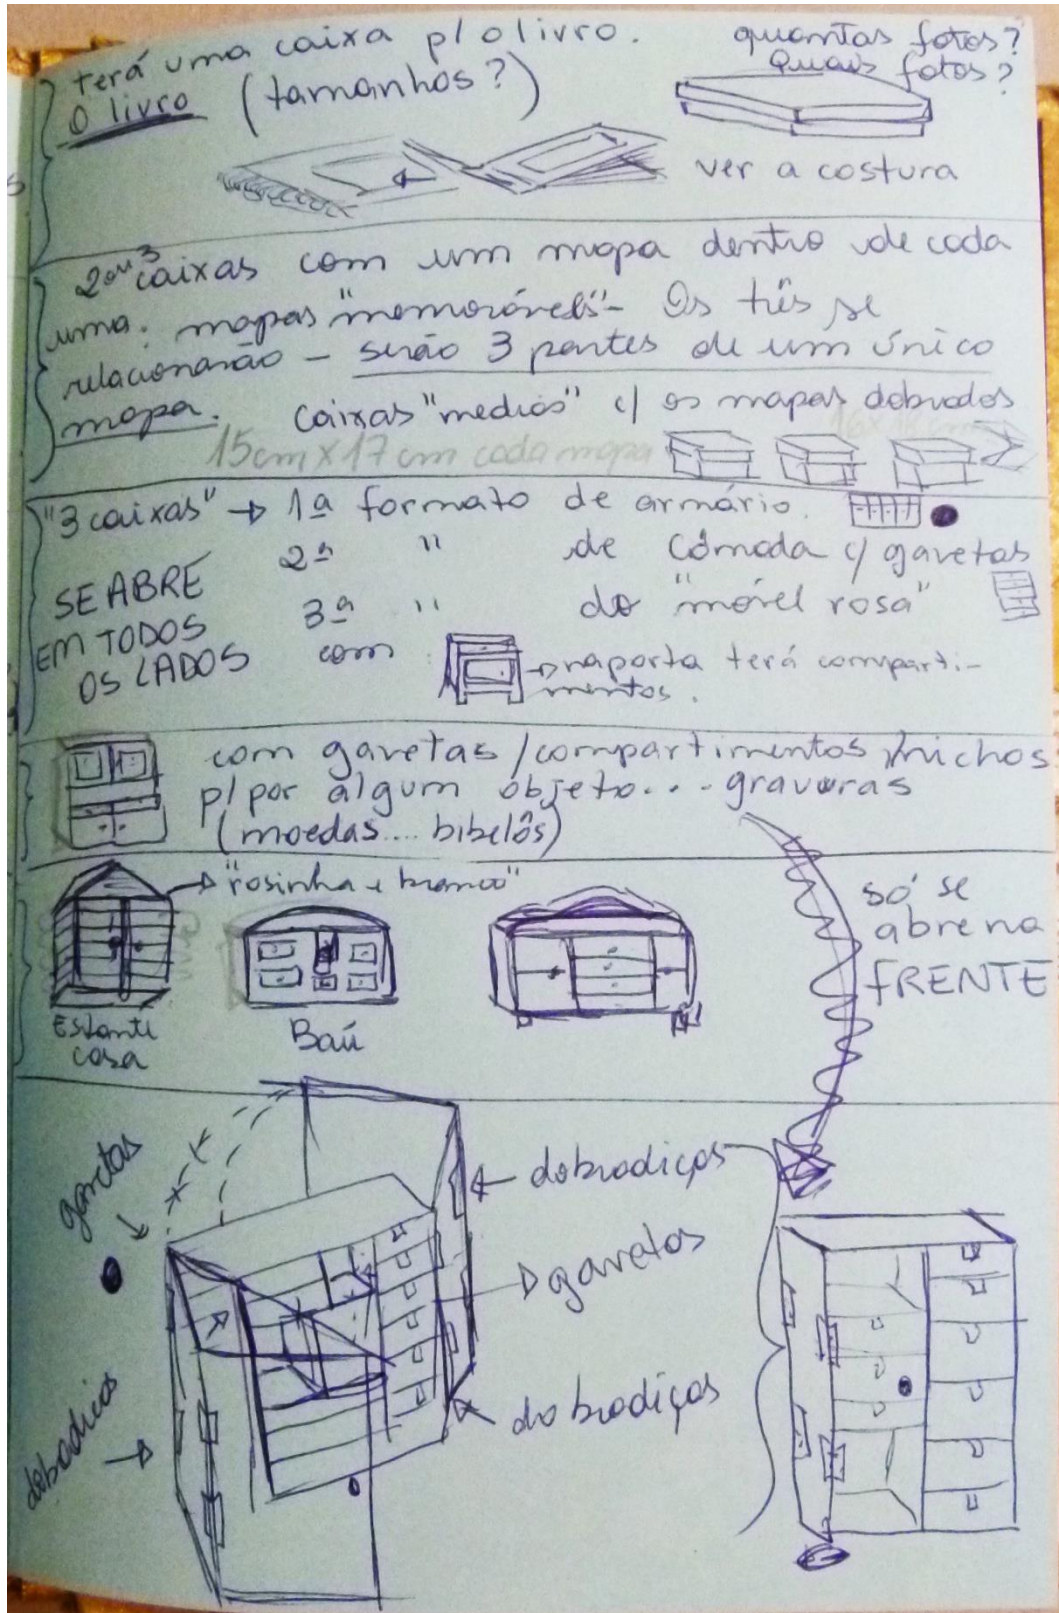 terá uma caixa p/ o livro.
quantas fotos?
Quais fotos?
O livro (tamanhos?)
ver a costura
2 ou 3 caixas com um mapa dentro de cada
uma. mapas "memoráveis" - Os três se
relacionarão - serão 3 partes de um único
mapa. Caixas "medias" c/ os mapas dobrados
15cm x 17cm cada mapa
"3 caixas" → 1ª formato de armário.
2ª " de Cômoda c/ gavetas
SE ABRE
EM TODOS
OS LADOS
3ª " do "móvel rosa"
com
→ na porta terá comparti-
mentos.
com gavetas / compartimentos / nichos
p/ por algum objeto... - gravuras
(moedas.... bibelôs)
→ "rosinha e branco"
só se
abre na
FRENTE
Estante
casa
Baú
gavetas
← dobradiças
→ gavetas
dobradiças
dobradiças